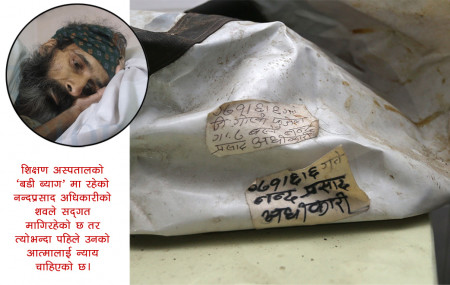 शिक्षण अस्पतालको
‘बडी ब्याग’ मा रहेको
नन्दप्रसाद अधिकारीको
शवले सद्‌गत
मागिरहेको छ तर
त्योभन्दा पहिले उनको
आत्मालाई न्याय
चाहिएको छ।
०७१।६।६ गते
प्रसाद अधिकारी
०७१।६।६ गते
नन्द प्रसाद
अधीकारी